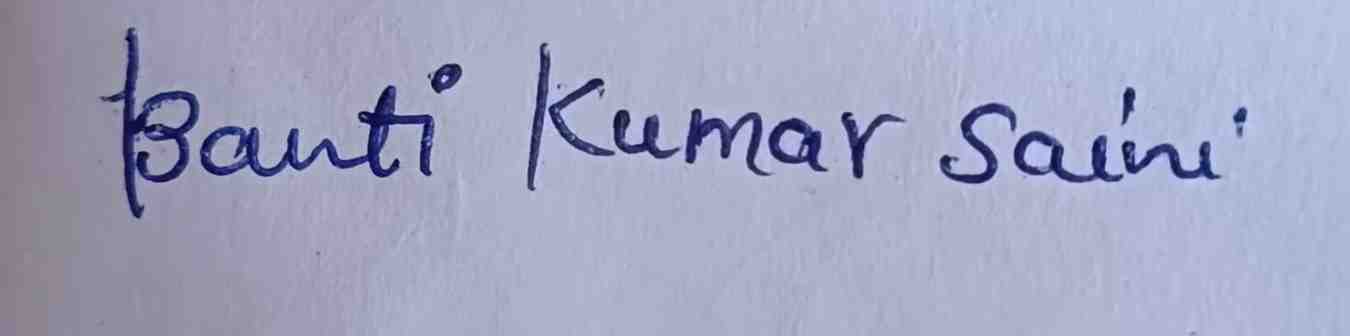 Banti Kumar Saini